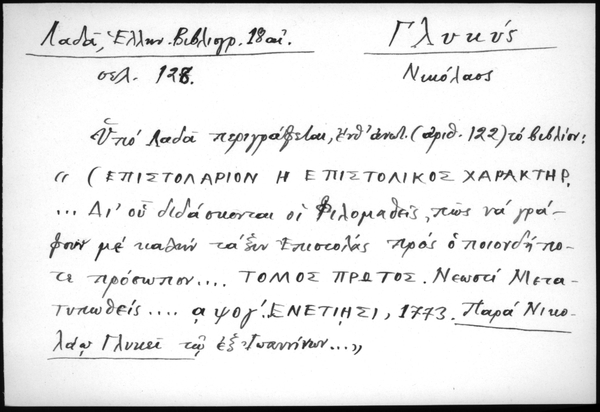 Λαδᾶ, Ἑλλην. Βιβλιογρ. 18 αἰ.
Γλυκύς
σελ. 128.
Νικόλαος
Ὑπό Λαδᾶ περιγράφεται, ἔνθ' ἀνωτ. (ἀριθ. 122) τό βιβλίον:
« (ΕΠΙΣΤΟΛΑΡΙΟΝ Η ΕΠΙΣΤΟΛΙΚΟΣ ΧΑΡΑΚΤΗΡ,
... Δι' οὗ διδάσκονται οἱ Φιλομαθεῖς, πῶς νά γρά-
φουν μέ καθ τάξιν Ἐπιστολάς πρός ὁποιονδήπο-
τε πρόσωπον.... ΤΟΜΟΣ ΠΡΩΤΟΣ. Νεωστί Μετα-
τυπωθείς .... ᾳψογ'. ΕΝΕΤΙΗΣΙ, 1773. Παρά Νικο-
λάῳ Γλυκεῖ τῷ ἐξ Ἰωαννίνων...»